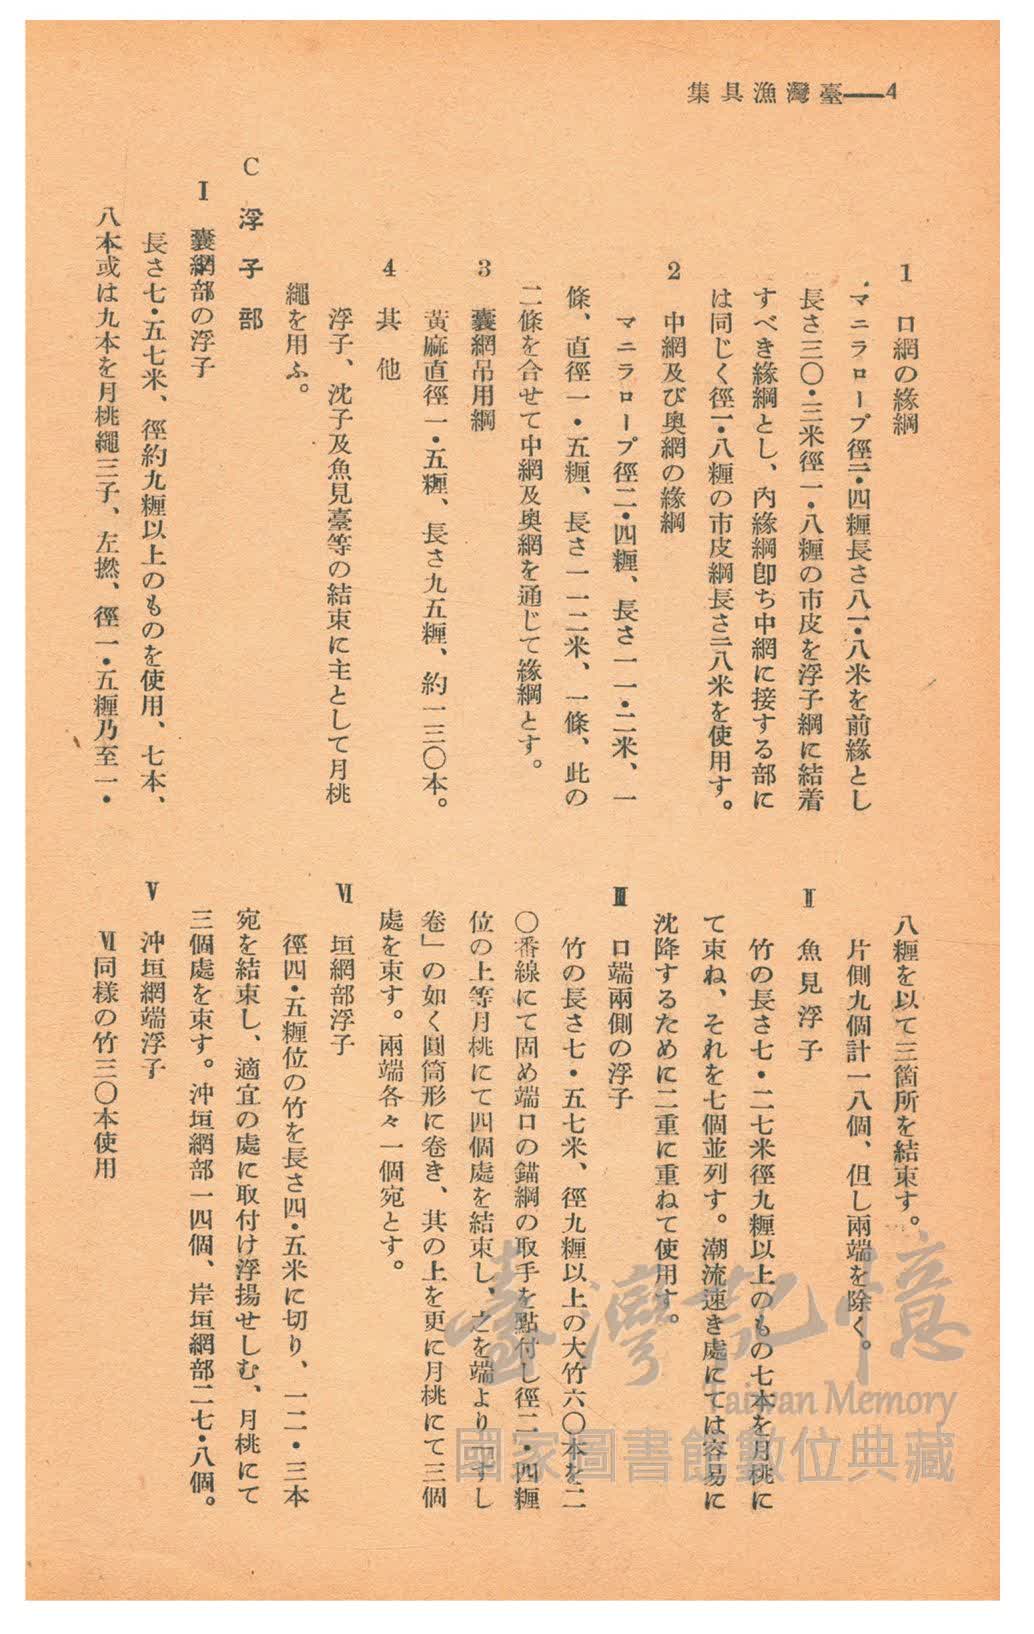 4——臺灣漁具集
1 口網の緣綱
マニラロープ徑二・四糎長さ八一・八米を前緣とし
長さ三〇・三米徑一・八糎の市皮を浮子綱に結着
すべき緣綱とし、內緣綱卽ち中網に接する部に
は同じく徑一・八糎の市皮綱長さ二八米を使用す。
2 中網及び奧網の緣綱
マニラロープ徑二・四糎、長さ一一・二米、一
條、直徑一・五糎、長さ一一二米、一條、此の
二條を合せて中網及奧網を通じて緣綱とす。
3 囊網吊用綱
黃麻直徑一・五糎、長さ九五糎、約一三〇本。
4 其他
浮子、沈子及魚見臺等の結束に主として月桃
繩を用ふ。
C 浮子部
Ⅰ 囊網部の浮子
長さ七・五七米、徑約九糎以上のものを使用、七本、
八本或は九本を月桃繩三子、左撚、徑一・五糎乃至一・
八糎を以て三箇所を結束す。
片側九個計一八個、但し兩端を除く。
Ⅱ 魚見浮子
竹の長さ七・二七米徑九糎以上のもの七本を月桃に
て束ね、それを七個並列す。潮流速き處にては容易に
沈降するために二重に重ねて使用す。
Ⅲ 口端兩側の浮子
竹の長さ七・五七米、徑九糎以上の大竹六〇本を二
〇番線にて固め端口の錨綱の取手を點付し徑二・四糎
位の上等月桃にて四個處を結束し、之を端より「すし
卷」の如く圓筒形に卷き、其の上を更に月桃にて三個
處を束す。兩端各々一個宛とす。
Ⅵ 垣網部浮子
徑四・五糎位の竹を長さ四・五米に切り、一二・三本
宛を結束し、適宜の處に取付け浮揚せしむ、月桃にて
三個處を束す。沖垣網部一四個、岸垣網部二七・八個。
Ⅴ 沖垣網端浮子
Ⅵ同樣の竹三〇本使用
臺灣記憶
Taiwan Memory
國家圖書館數位典藏